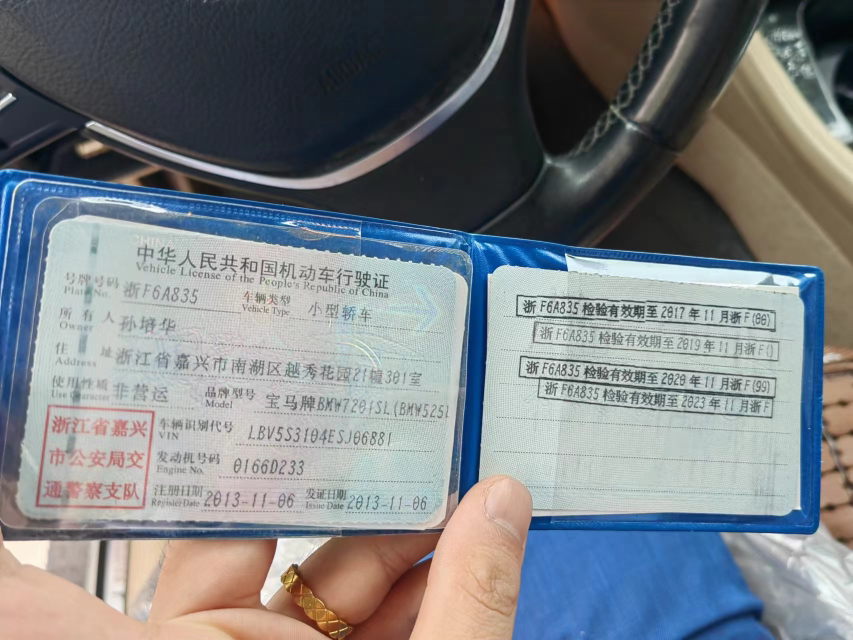 中华人民共和国机动车行驶证
Vehicle License of the People's Republic of China
号牌号码 浙F6A835 车辆类型 小型轿车
Plate No. Vehicle Type
所有人 孙培华
Owner
住址 浙江省嘉兴市南湖区越秀花园21幢301室
Address
使用性质 非营运 品牌型号 宝马牌BMW7201SL(BMW525l
Use Character Model
浙江省嘉兴
市公安局交
通警察支队
车辆识别代号 LBV5S3104ESJ06881
VIN
发动机号码 0166D233
Engine No.
注册日期 2013-11-06 发证日期 2013-11-06
Register Date Issue Date
浙F6A835 检验有效期至 2017 年 11 月浙 F(00)
浙F6A835 检验有效期至 2019 年 11 月浙 F()
浙F6A835 检验有效期至 2020 年 11 月浙 F(99)
浙F6A835 检验有效期至 2023 年 11 月浙 F